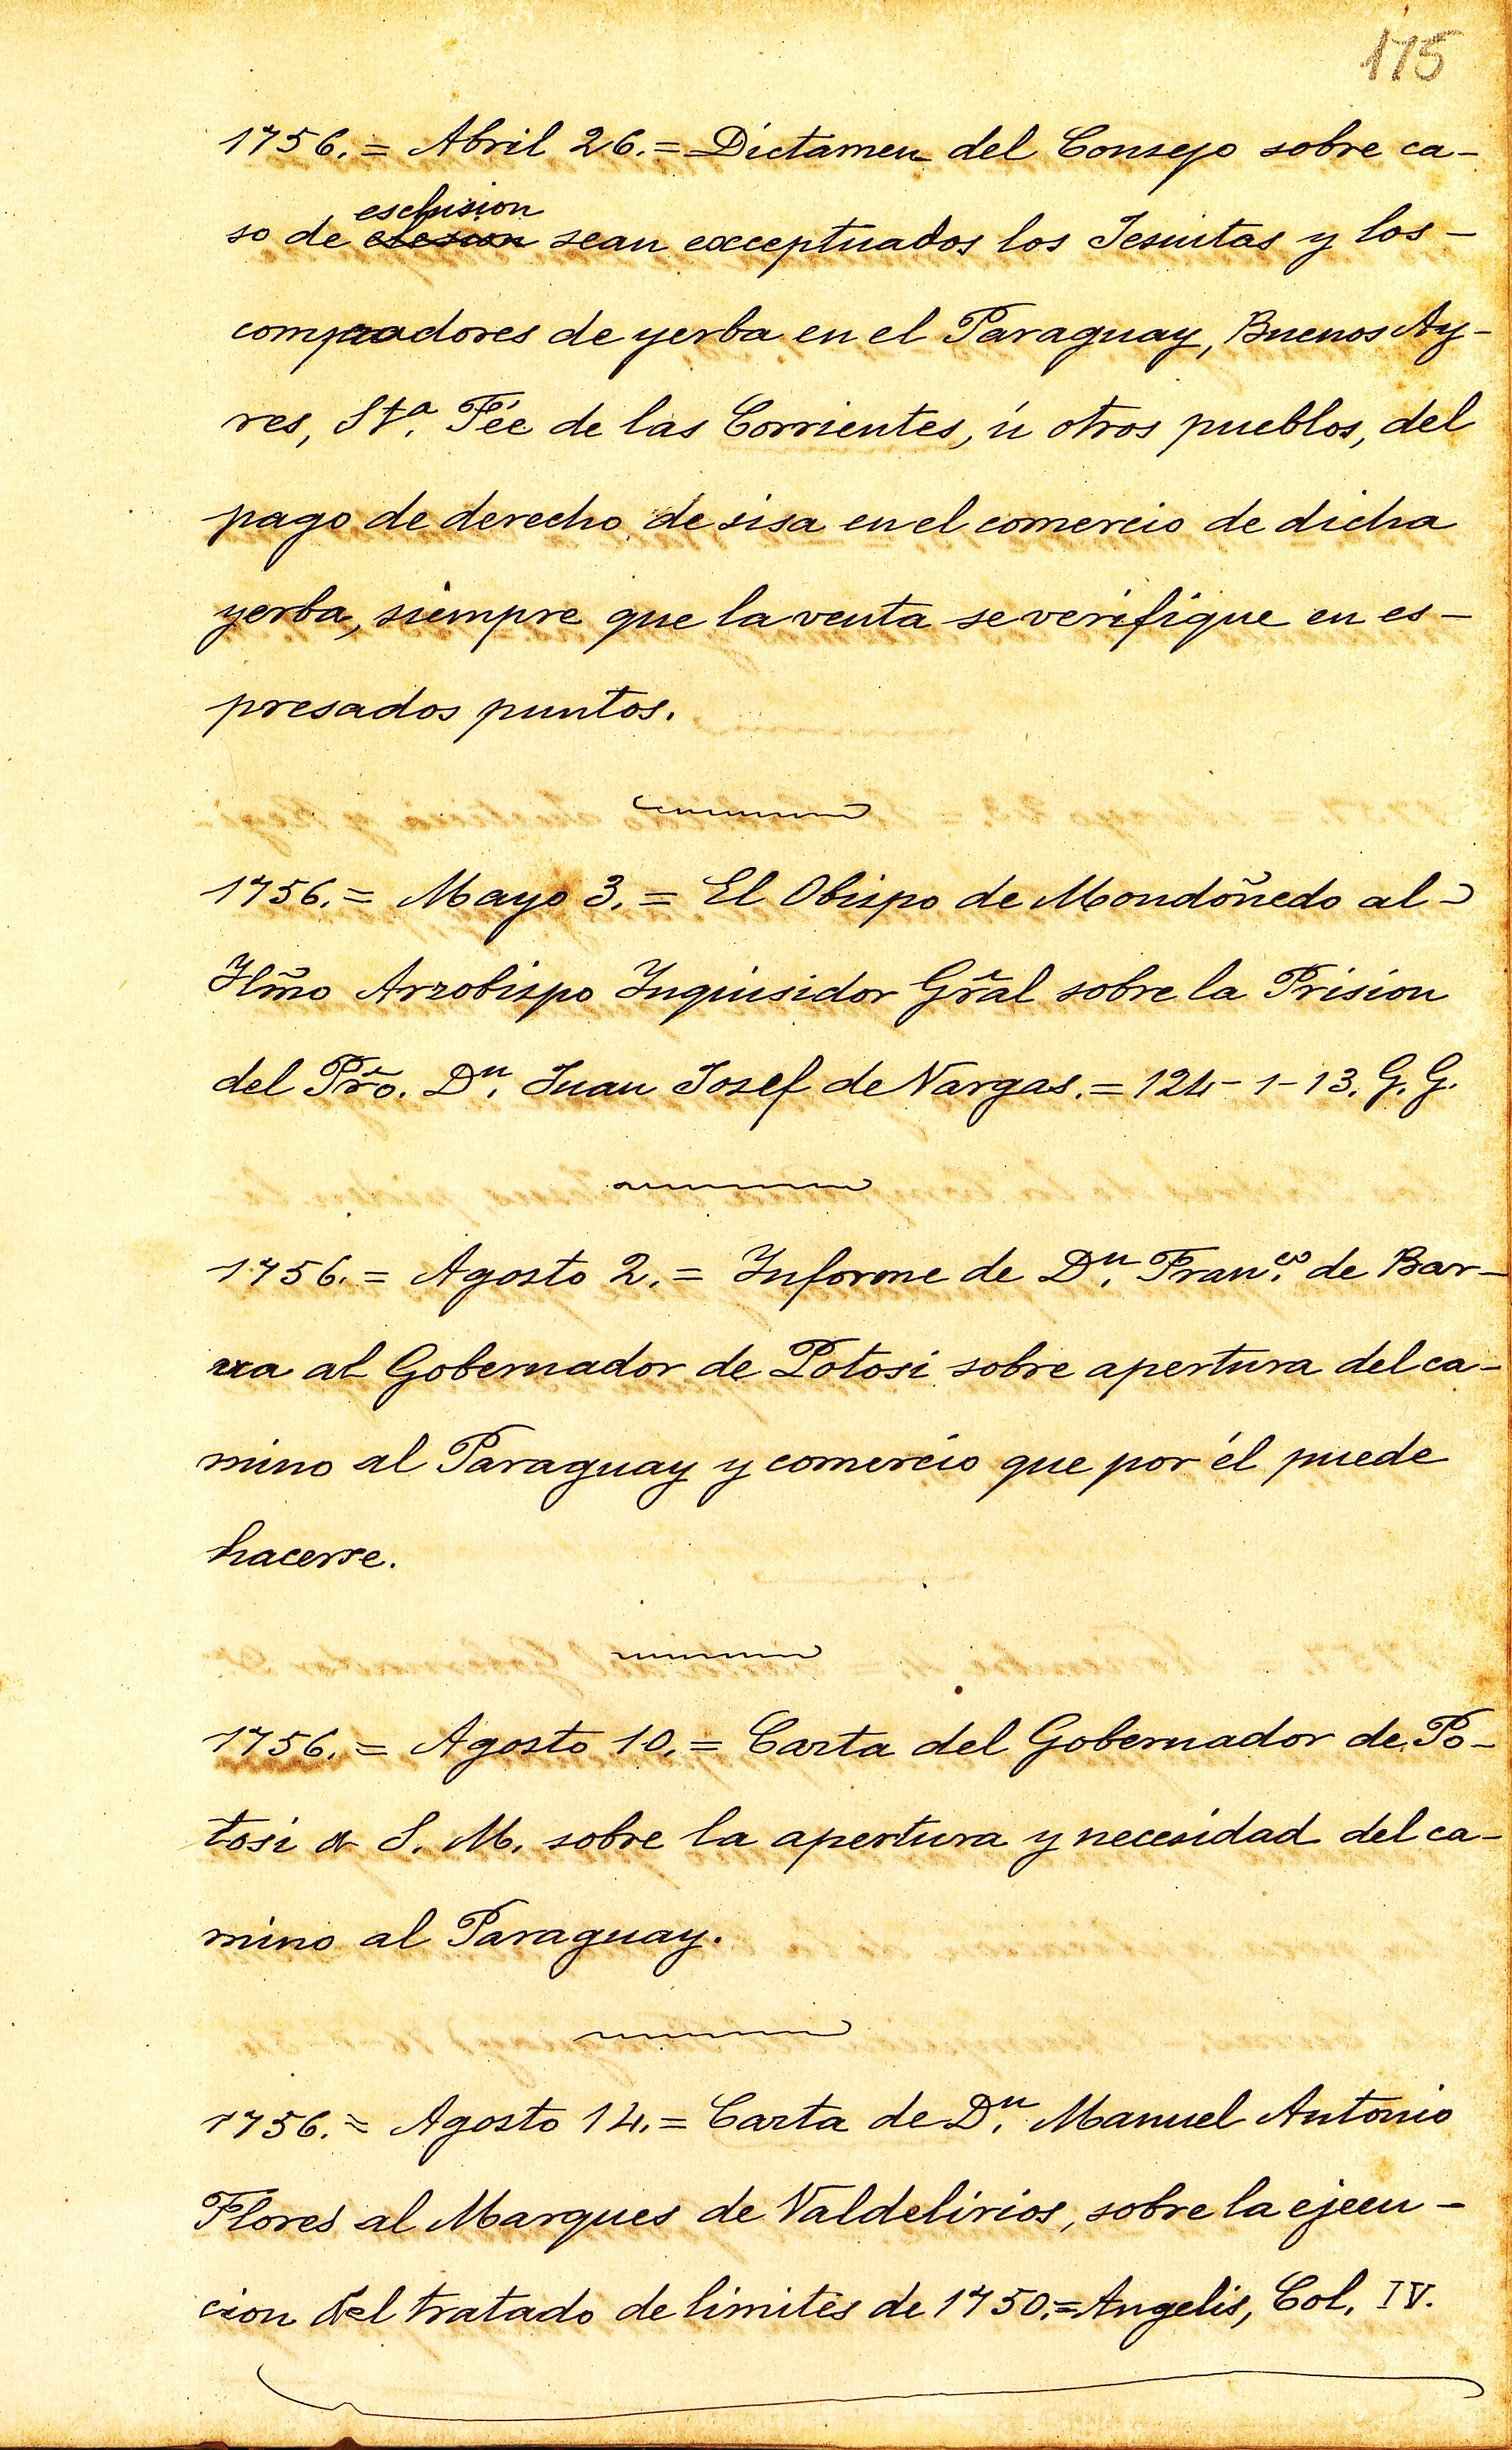 175
1756. = Abril 26. = Dictamen del Consejo sobre ca-
esclusion
so de elesion sean exceptuados los Jesuitas y los -
compradores de yerba en el Paraguay, Buenos Ay-
res, Sta. Fée de las Corrientes, ú otros pueblos, del
pago de derecho de sisa en el comercio de dicha
yerba, siempre que la venta se verifique en es-
presados puntos.
1756. = Mayo 3. = El Obispo de Mondoñedo al -
Ylm̃o Arzobispo Ynquisidor Gr̃al sobre la Prision
del Pr̃o. Dn. Juan Josef de Vargas. = 124-1-13. G. G.
1756. = Agosto 2. = Ynforme de Dn. Franco. de Bar-
rra al Gobernador de Potosi sobre apertura del ca-
mino al Paraguay y comercio que por él puede
hacerse.
1756. = Agosto 10. = Carta del Gobernador de Po-
tosi a S. M. sobre la apertura y necesidad del ca-
mino al Paraguay.
1756. = Agosto 14. = Carta de Dn. Manuel Antonio
Flores al Marques de Valdelirios, sobre la ejecu-
cion del tratado de limites de 1750. = Angelis, Col. IV.